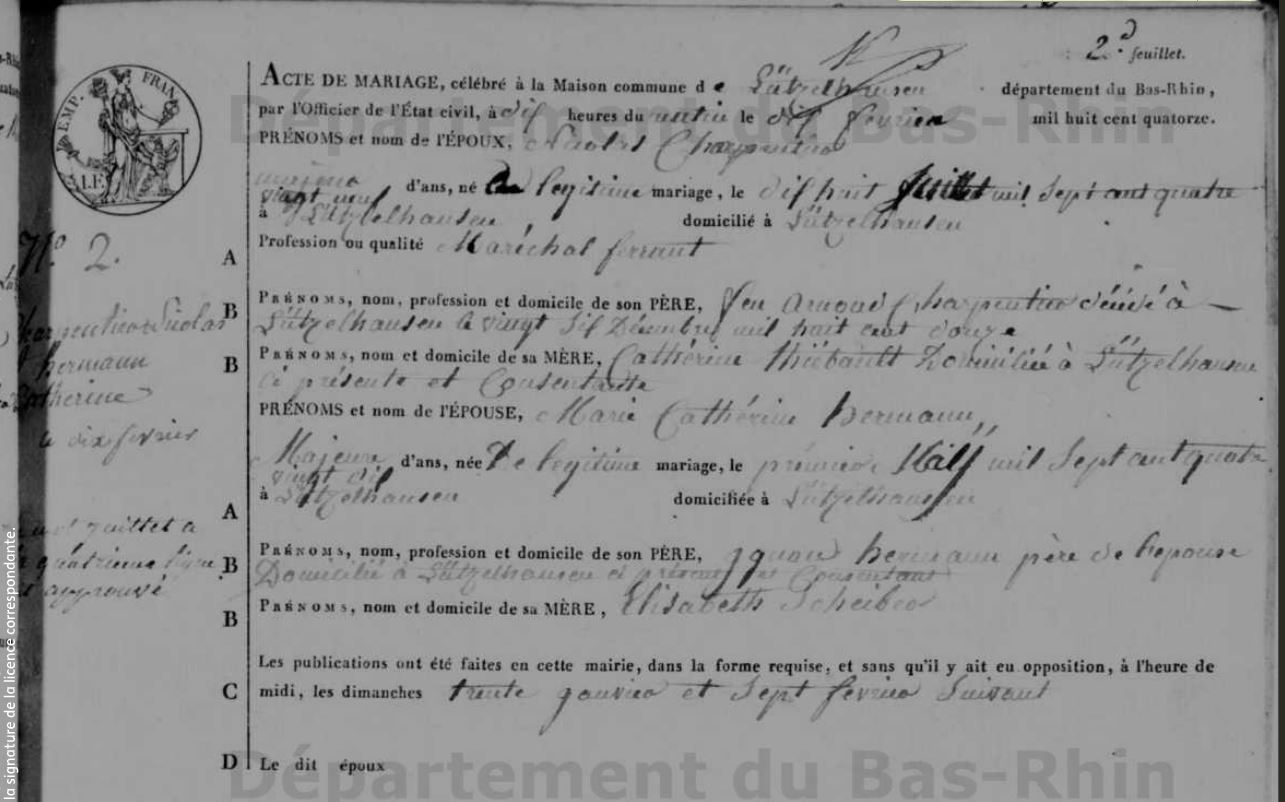 2d feuillet.
ACTE DE MARIAGE, célébré à la Maison commune de Lützelhausen département du Bas-Rhin,
par l'Officier de l'État civil, à dix heures du matin le dix fevrier mil huit cent quatorze.
PRÉNOMS et nom de l'ÉPOUX, Nicolas Charpentier
majeur d'ans, né de legitime mariage, le dix huit Juillet mil Sept cent quatre
vingt neuf
à Lützelhausen domicilié à Lützelhausen
Profession ou qualité Maréchal ferrant
A
PRÉNOMS, nom, profession et domicile de son PÈRE, feu Charpentier décédé à
B
Lützelhausen le vingt dix Décembre mil huit cent douze
PRÉNOMS, nom et domicile de sa MÈRE, Cathérine Thiébault Domiciliée à Lützelhausen
B
ci présente et Consentante
PRÉNOMS et nom de l'ÉPOUSE, Marie Cathérine hermann,
Majeure d'ans, née De legitime mariage, le prémier mil Sept cent quatre
vingt dix
à Lützelhausen domiciliée à Lützelhausen
A
PRÉNOMS, nom, profession et domicile de son PÈRE, hermann père de l'epouse
B
Domicilié à Lützelhausen ci présent et Consentant
PRÉNOMS, nom et domicile de sa MÈRE, Elisabeth Scheiber
B
Les publications ont été faites en cette mairie, dans la forme requise, et sans qu'il y ait eu opposition, à l'heure de
C midi, les dimanches trente janvier et Sept fevrier Suivant
D Le dit époux
EMP. FRAN.
N° 2.
Charpentier Nicolas
hermann
Catherine
le dix fevrier
juillet a
la quatrieme ligne
approuvé
Département du Bas-Rhin
Département du Bas-Rhin
la signature de la licence correspondante.